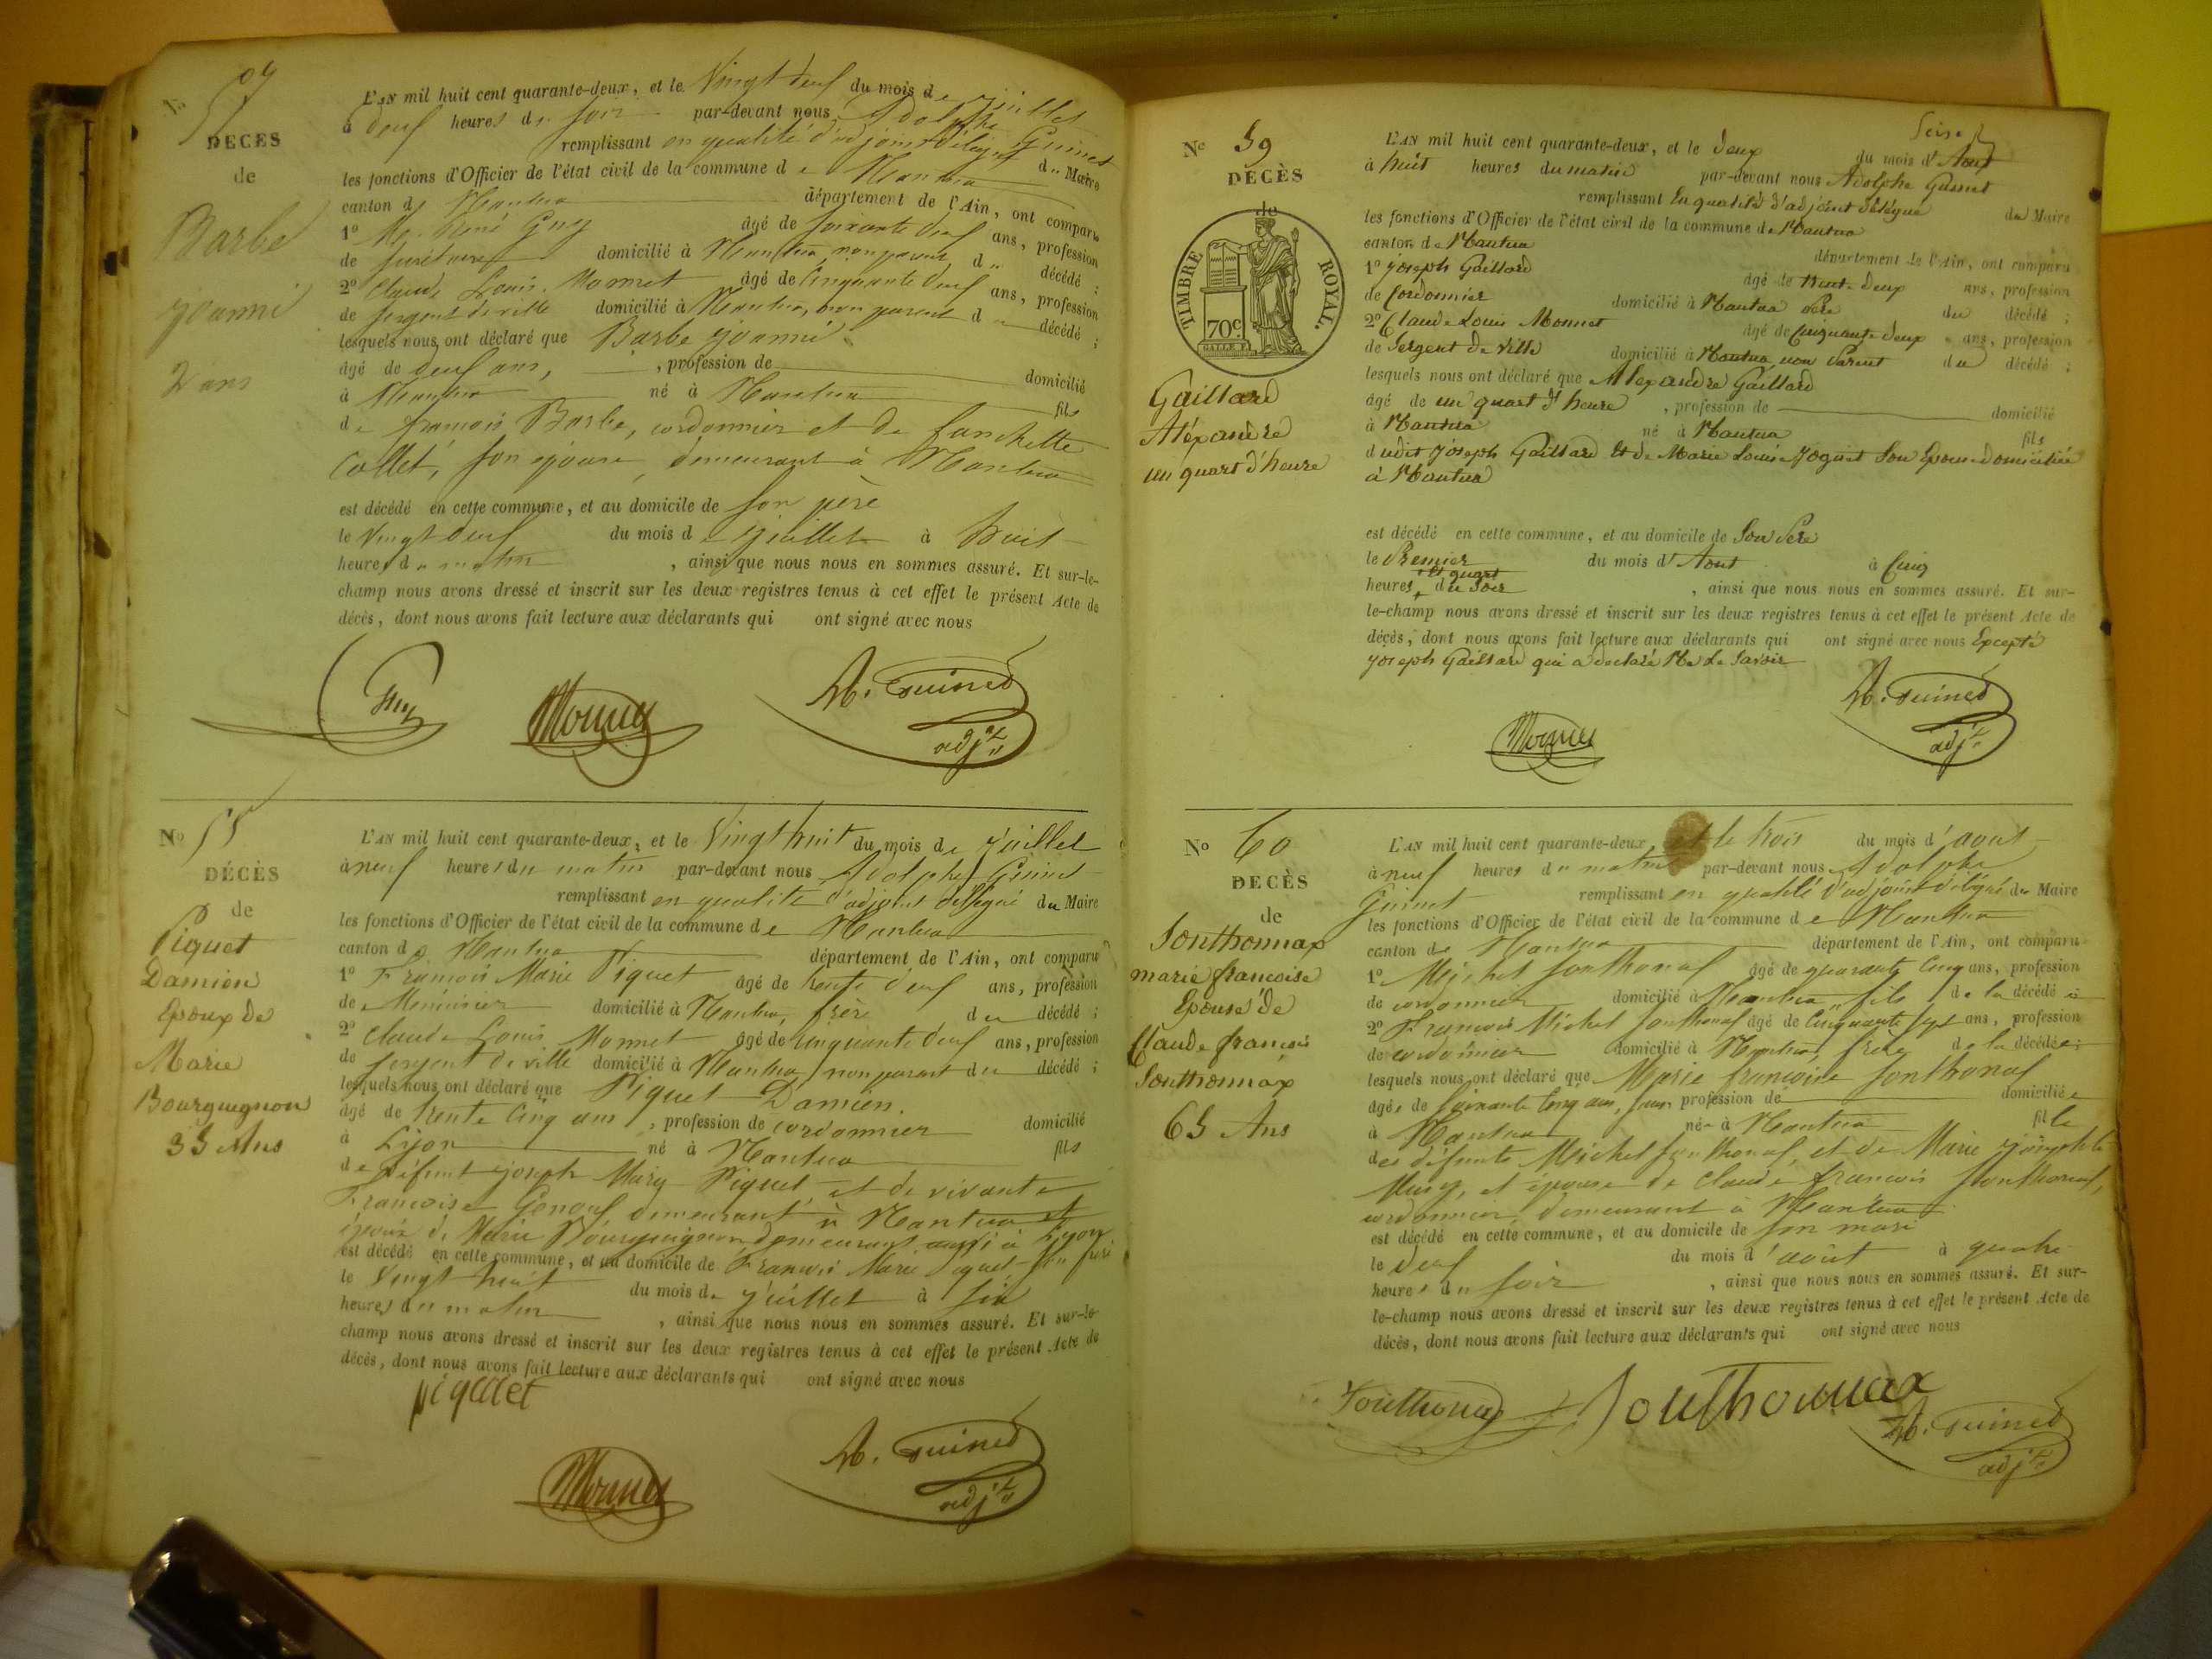 L'AN mil huit cent quarante-deux, et le Vingt deux du mois de juillet
à deux heures du soir par-devant nous Adolphe Guinet
remplissant en qualité d'adjoint délégué du Maire
les fonctions d'Officier de l'état civil de la commune de Nantua
canton de Nantua département de l'Ain, ont comparu
1º René Guy âgé de soixante deux ans, profession
de domicilié à Nantua, non parent du décédé ;
2º Claude Louis Monnet âgé de Cinquante deux ans, profession
de sergent de ville domicilié à Nantua, non parent du décédé ;
lesquels nous ont déclaré que Barbe
âgé de deux ans, , profession de domicilié
à Nantua né à Nantua fils
de françois Barbe, cordonnier et de fanchette
Collet, son épouse, demeurant à Nantua
est décédé en cette commune, et au domicile de son père
le Vingt deux du mois de juillet à huit
heures du matin , ainsi que nous nous en sommes assuré. Et sur-le-
champ nous avons dressé et inscrit sur les deux registres tenus à cet effet le présent Acte de
décès, dont nous avons fait lecture aux déclarants qui ont signé avec nous
Nº
DÉCÈS
de
Barbe
2 ans
Guy Monnet A. Guinet
adjt
Nº
DÉCÈS
de
Piquet
Damien
Epoux de
Marie
Bourguignon
35 Ans
L'AN mil huit cent quarante-deux, et le Vingt huit du mois de juillet
à neuf heures du matin par-devant nous Adolphe Guinet
remplissant en qualité d'adjoint délégué du Maire
les fonctions d'Officier de l'état civil de la commune de Nantua
canton de Nantua département de l'Ain, ont comparu
1º François Marie Piquet âgé de trente deux ans, profession
de Menuisier domicilié à Nantua, frère du décédé ;
2º Claude Louis Monnet âgé de cinquante deux ans, profession
de sergent de ville domicilié à Nantua, non parent du décédé ;
lesquels nous ont déclaré que Piquet Damien.
âgé de trente Cinq ans , profession de cordonnier domicilié
à Lyon né à Nantua fils
de défunt joseph Mary Piquet, et de vivante
Françoise demeurant à Nantua et
époux de Marie Bourguignon demeurant aussi à Lyon
est décédé en cette commune, et au domicile de François Marie Piquet son frère
le Vingt huit du mois de juillet à six
heures du matin , ainsi que nous nous en sommes assuré. Et sur-le-
champ nous avons dressé et inscrit sur les deux registres tenus à cet effet le présent Acte de
décès, dont nous avons fait lecture aux déclarants qui ont signé avec nous
piquet
Monnet A. Guinet
adjt
Nº 59
DÉCÈS
de
TIMBRE ROYAL.
70c
Gaillard
Aléxandre
un quart d'heure
L'AN mil huit cent quarante-deux, et le deux du mois d'Aout
à huit heures du matin par-devant nous Adolphe Guinet
remplissant En qualité d'adjoint délégué du Maire
les fonctions d'Officier de l'état civil de la commune de Nantua
canton de Nantua département de l'Ain, ont comparu
1º joseph Gaillard âgé de trente deux ans, profession
de Cordonnier domicilié à Nantua Père du décédé ;
2º Claude Louis Monnet âgé de Cinquante deux ans, profession
de Sergent de Ville domicilié à Nantua non Parent du décédé ;
lesquels nous ont déclaré que Alexandre Gaillard
âgé de un quart d'heure , profession de domicilié
à Nantua né à Nantua fils
dudit Joseph Gaillard Et de Marie Louise Son Epouse domiciliée
à Nantua
est décédé en cette commune, et au domicile de Son Père
le Premier du mois d'Aout à Cinq
et quart
heures du Soir , ainsi que nous nous en sommes assuré. Et sur-
le-champ nous avons dressé et inscrit sur les deux registres tenus à cet effet le présent Acte de
décès, dont nous avons fait lecture aux déclarants qui ont signé avec nous Excepté
Joseph Gaillard qui a déclaré Ne Le Savoir
Monnet A. Guinet
adjt
Nº 60
DÉCÈS
de
Sonthonnax
marie françoise
Epouse de
Claude françois
Sonthonnax
65 Ans
L'AN mil huit cent quarante-deux et le trois du mois d'aout
à neuf heures du matin par-devant nous Adolphe
Guinet remplissant en qualité d'adjoint délégué du Maire
les fonctions d'Officier de l'état civil de la commune de Nantua
canton de Nantua département de l'Ain, ont comparu
1º Michel Sonthonax âgé de quarante Cinq ans, profession
de cordonnier domicilié à Nantua fils de la décédée
2º François Michel Sonthonax âgé de Cinquante sept ans, profession
de cordonnier domicilié à Nantua, frère de la décédée ;
lesquels nous ont déclaré que Marie françoise Sonthonax
âgée de Soixante Cinq ans, sans profession de domiciliée
à Nantua née à Nantua fille
des défunts Michel Sonthonax, et de Marie
et épouse de Claude françois Sonthonax,
cordonnier, demeurant à Nantua
est décédé en cette commune, et au domicile de son mari
le deux du mois d'août à quatre
heures du soir , ainsi que nous nous en sommes assuré. Et sur-
le-champ nous avons dressé et inscrit sur les deux registres tenus à cet effet le présent Acte de
décès, dont nous avons fait lecture aux déclarants qui ont signé avec nous
Sonthonax Sonthonnax
A. Guinet
adjt